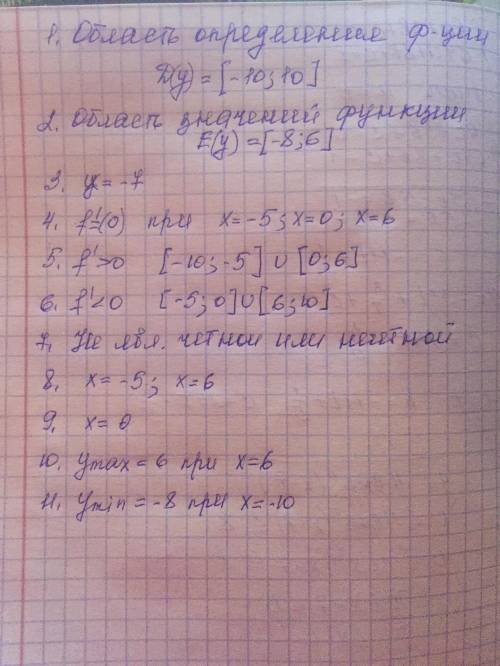 1. Область определения ф-ции
D(y) = [-10; 10]
2. Область значений функции
E(y) = [-8; 6]
3. x = -7
4. f'=(0) при x=-5; x=0; x=6
5. f'>0 [-10; -5] ∪ [0; 6]
6. f'<0 [-5; 0] ∪ [6; 10]
7. Не явл. четной или нечетной
8. x = -5; x=6
9. x = 0
10. ymax = 6 при x=6
11. ymin = -8 при x=-10